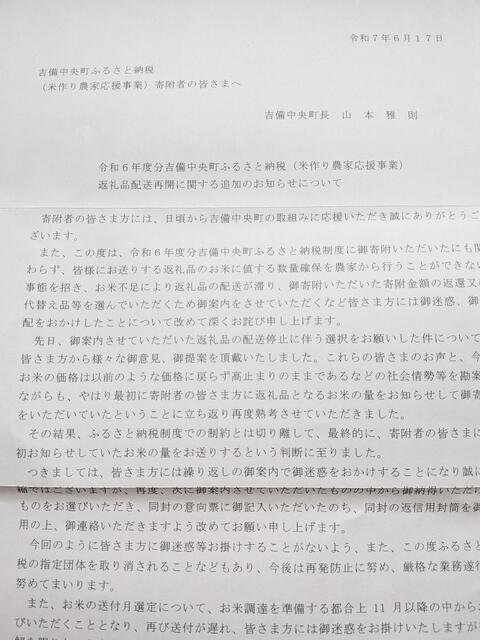 令和7年6月17日
吉備中央町ふるさと納税
(米作り農家応援事業)寄附者の皆さまへ
吉備中央町長 山本雅則
令和6年度分吉備中央町ふるさと納税(米作り農家応援事業)
返礼品配送再開に関する追加のお知らせについて
寄附者の皆さま方には、日頃から吉備中央町の取組みに応援いただき誠にありがとうご
ざいます。
また、この度は、令和6年度分吉備中央町ふるさと納税制度に御寄附いただいたにも関
わらず、皆様にお送りする返礼品のお米に値する数量確保を農家から行うことができない
事態を招き、お米不足により返礼品の配送が滞り、御寄附いただいた寄附金額の返還又は
代替え品等を選んでいただくため御案内をさせていただくなど皆さま方には御迷惑、御
配をおかけしたことについて改めて深くお詫び申し上げます。
先日、御案内させていただいた返礼品の配送停止に伴う選択をお願いした件について
皆さま方から様々な御意見、御提案を頂戴いたしました。これらの皆さまのお声と、今
お米の価格は以前のような価格に戻らず高止まりのままであるなどの社会情勢等を勘案
ながらも、やはり最初に寄附者の皆さま方に返礼品となるお米の量をお知らせして御寄
をいただいていたということに立ち返り再度熟考させていただきました。
その結果、ふるさと納税制度での制約とは切り離して、最終的に、寄附者の皆さまに
初お知らせしていたお米の量をお送りするという判断に至りました。
つきましては、皆さま方には繰り返しの御案内で御迷惑をおかけすることになり誠に
縮ではございますが、再度、次に御案内させていただいたものの中から御納得いただけ
ものをお選びいただき、同封の意向票に御記入いただいたのち、同封の返信用封筒を御
用の上、御連絡いただきますよう改めてお願い申し上げます。
今回のように皆さま方に御迷惑等お掛けすることがないよう、また、この度ふるさと
税の指定団体を取り消されることなどもあり、今後は再発防止に努め、厳格な業務遂行
努めてまいります。
また、お米の送付月選定について、お米調達を準備する都合上 11 月以降の中からお
びいただくこととなり、再び送付が遅れ、皆さま方には御迷惑をお掛けいたします